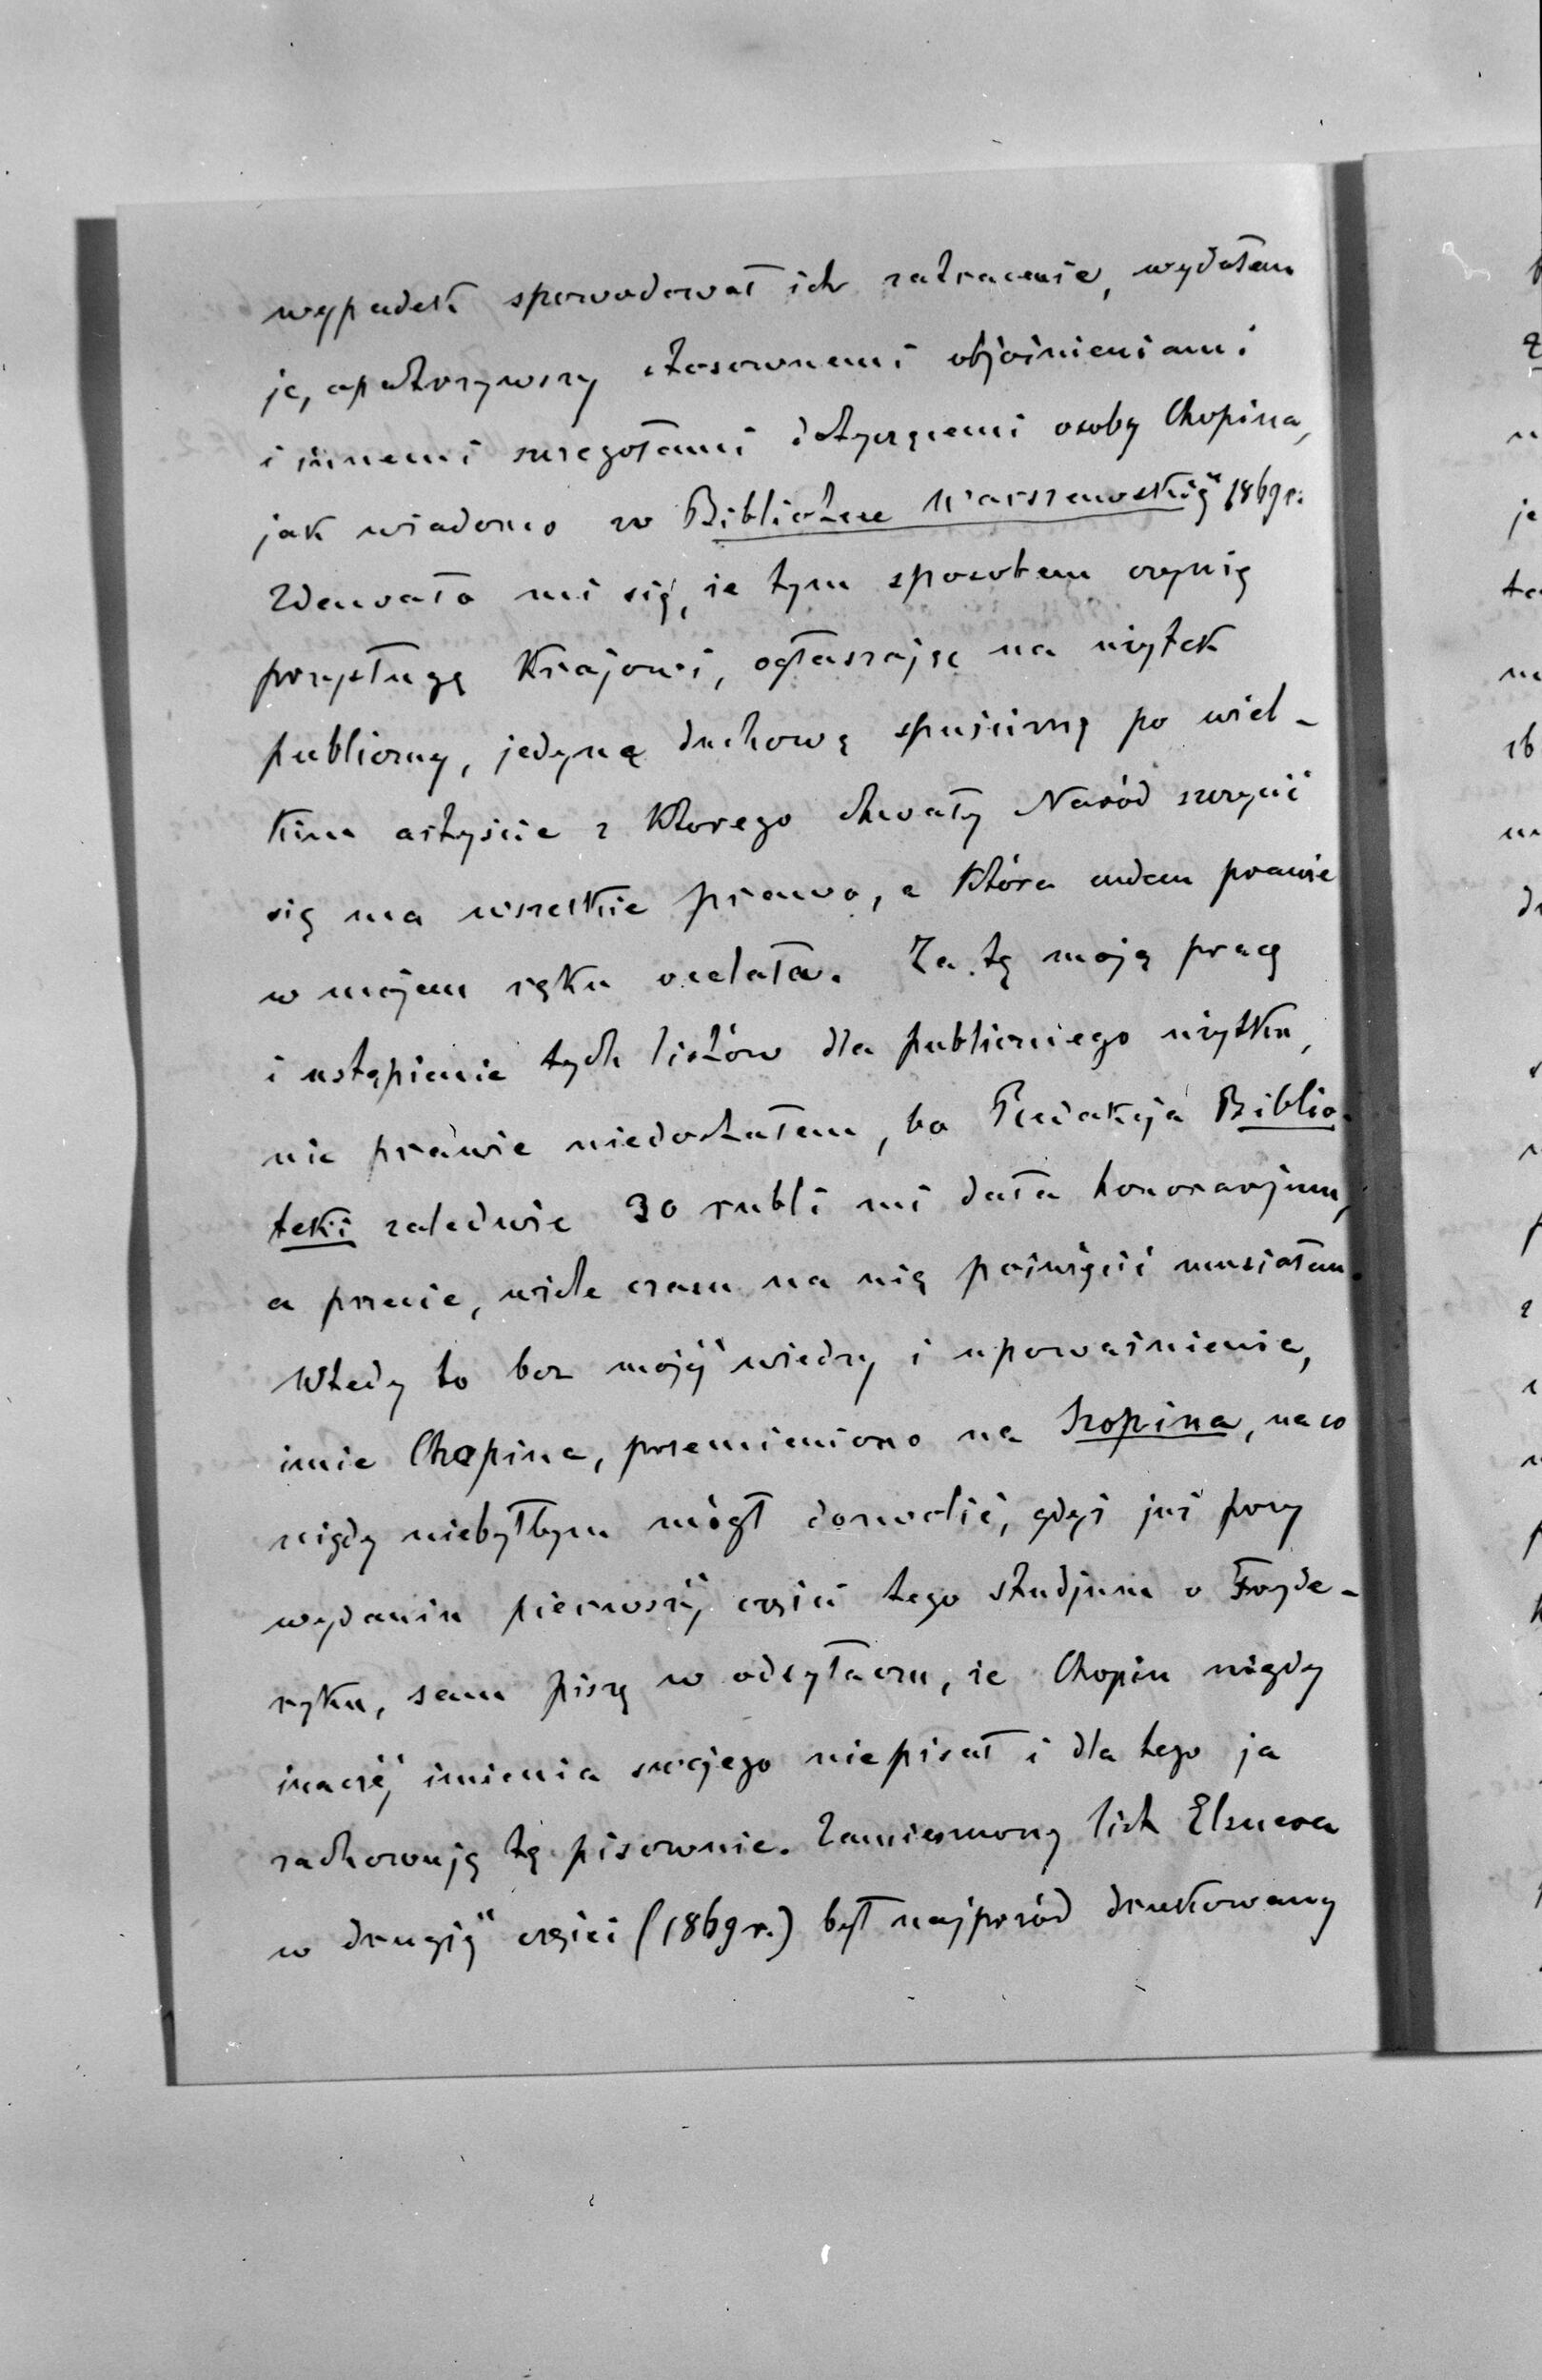 wypadek spowodował ich zatracenie, wydałem
je, opatrzywszy stosownemi objaśnieniami
i innemi szczegółami dotyczącemi osoby Chopina,
jak wiadomo w Bibliotece Warszawskiéj 1869 r.
Zdawało mi się, że tym sposobem czynię
przysługę Krajowi, ogłaszając na użytek
publiczny, jedyną duchową spuściznę po wiel-
kim artyście z którego chwały Naród szczycić
się ma wszelkie prawo, a która cudem prawie
w mojem ręku ocalała. Za tę moją pracę
i ustąpienie tych listów dla publicznego użytku,
nic prawie niedostałem, bo Redakcja Biblio-
teki zaledwie 30 rubli mi dała honorarjum,
a przecie, wiele czasu na nią poświęcić musiałem.
Wtedy to bez mojéj wiedzy i upoważnienia,
imie Chopina, przemieniono na Szopina, na co
nigdy niebyłbym mógł dozwolić, gdyż już przy
wydaniu pierwszéj części tego studjum o Fryde-
ryku, sam piszę w odsyłaczu, że Chopin nigdy
inaczéj imienia swojego niepisał i dla tego ja
zachowuję tę pisownie. Zamieszczony list Elsnera
w drugiéj części (1869 r.) był najprzód drukowany